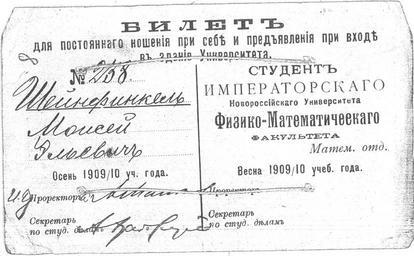 БИЛЕТЪ
для постояннаго ношенія при себѣ и предъявленія при входѣ
въ зданіе Университета.
№ 258.
Шейнфинкель
Моисей
Эльевичъ
Осень 1909/10 уч. года.
Проректоръ
Секретарь
по студ. дѣламъ
СТУДЕНТЪ
ИМПЕРАТОРСКАГО
Новороссійскаго Университета
Физико-Математическаго
ФАКУЛЬТЕТА
Матем. отд.
Весна 1909/10 учеб. года.
Проректоръ
Секретарь
по студ. дѣламъ